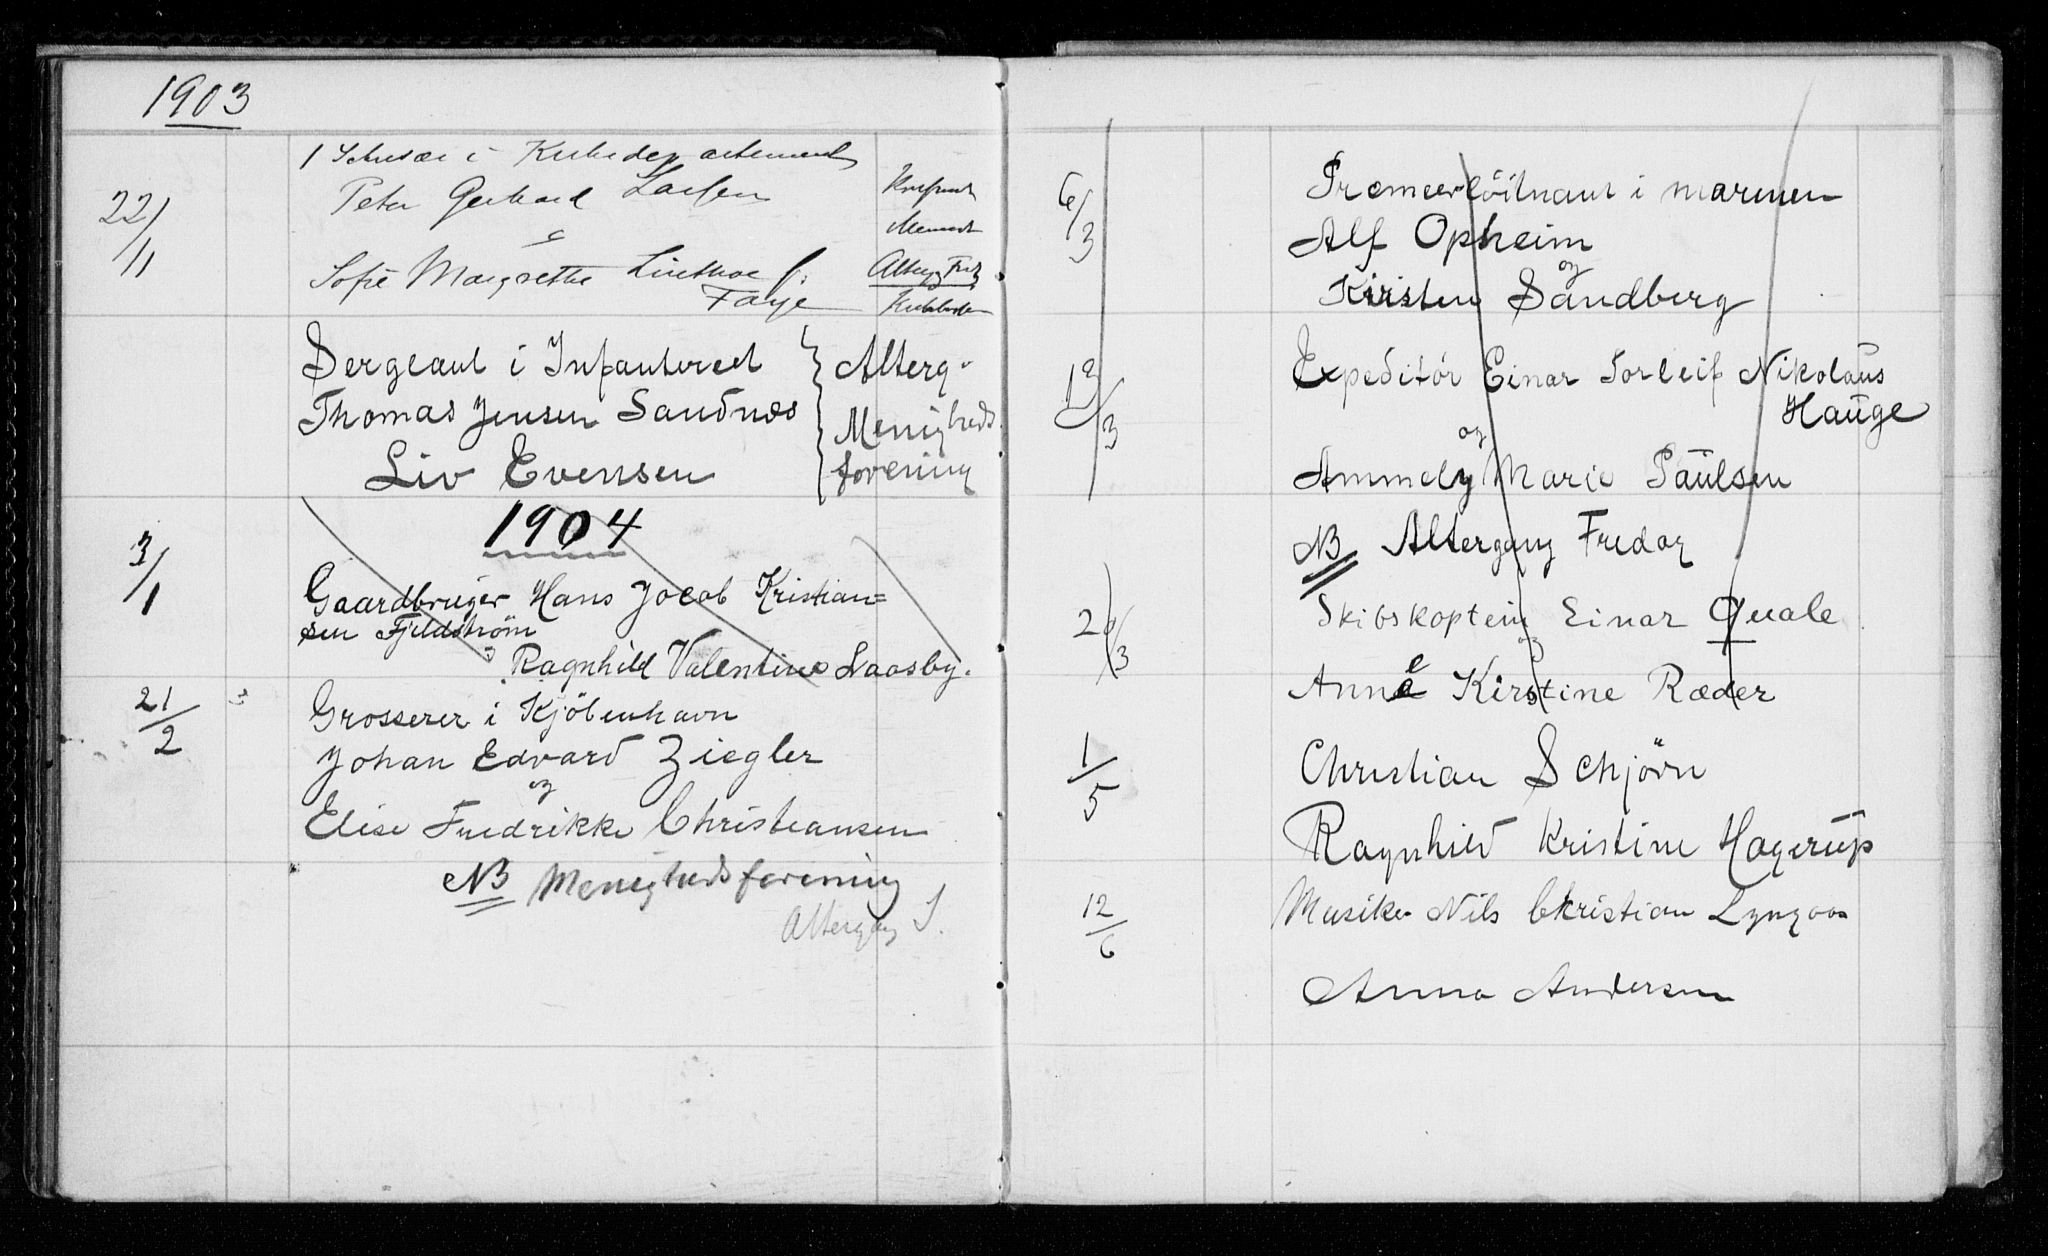 1903
22/11
Peter Gerhard Larsen
Sofie Margrethe Linthoe f.
Faye
Sergeant i Infanteriet
Thomas Jensen Sandnæs
Liv Evensen
Alterg.
Menigheds
forening
1904
3/1
Gaardbruger Hans Jacob Kristian=
sen Fjeldstrøm
Ragnhild Valentine Naasby.
21/2
Grosserer i Kjöbenhavn
Johan Edvard Ziegler
og
Elise Fredrikke Christiansen
NB Menighedsforening
Altergang
6/3
Premierlöitnant i marinen
Alf Opheim
og
Kirsten Sandberg
12/3
Expeditör Einar Torleif Nikolaus
Hauge
og
Ammely Marie Paulsen
NB Altergang Fredag
20/3
Skibskaptein Einar Quale
Anne Kirstine Ræder
1/5
Christian Schjörn
Ragnhild Kristine Hagerup
12/6
Musiker Nils Christian Lyngaas
Anna Andersen